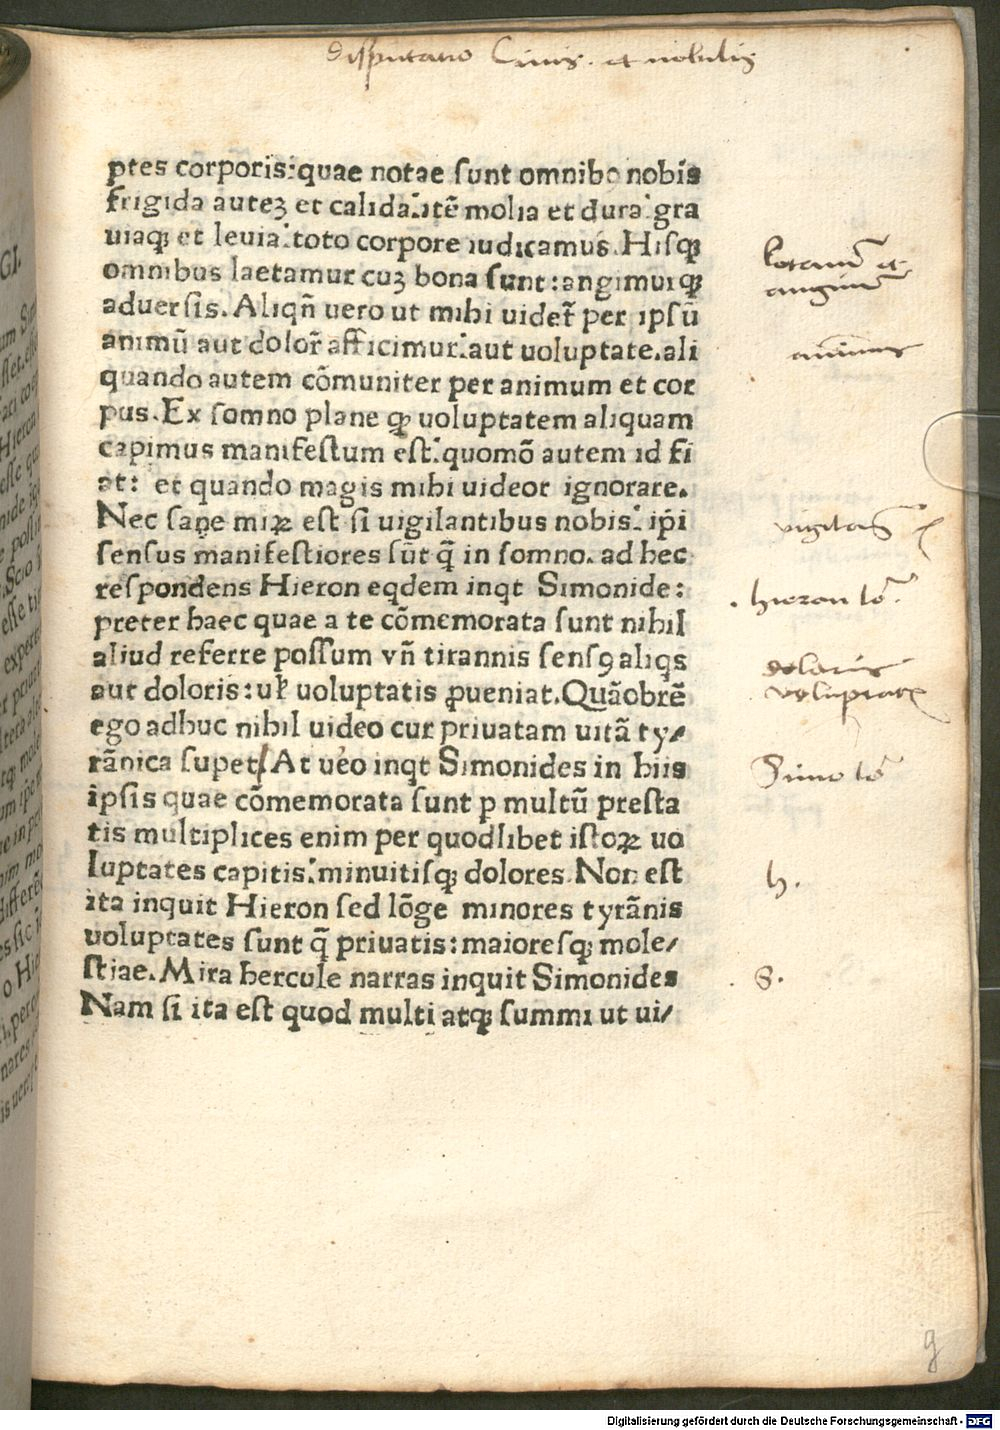 disputatio Ciuis. et nobilis
ptes corporis: quae notae sunt omnibꝰ nobis
frigida auteꝫ et calida: itē molia et dura: gra
uiaqꝫ et leuia: toto corpore iudicamus. Hisqꝫ
omnibus laetamur cuꝫ bona sunt: angimurqꝫ
aduersis. Aliqñ uero ut mihi uidet̃ per ipsū
animū aut dolor̃ afficimur: aut uoluptate. ali
quando autem cōmuniter per animum et cor
pus. Ex somno plane qꝫ uoluptatem aliquam
capimus manifestum est: quomō autem id fi
at: et quando magis mihi uideor ignorare.
Nec sane miꝝ est si uigilantibus nobis: ip̄i
sensus manifestiores sūt q̄ in somno. ad hec
respondens Hieron eqdem inqt Simonide:
preter haec quae a te cōmemorata sunt nihil
aliud referre possum vñ tirannis sensꝯ aliqs
aut doloris: uł uoluptatis ꝓueniat. Quāobrē
ego adhuc nihil uideo cur priuatam uitā ty/
rānica supet/ At ueo inqt Simonides in hiis
ipsis quae cōmemorata sunt p multū presta
tis multiplices enim per quodlibet istoꝝ uo
luptates capitis: minuitisqꝫ dolores. Non est
ita inquit Hieron sed lōge minores tyrānis
uoluptates sunt q̄ priuatis: maioresqꝫ mole/
stiae. Mira hercule narras inquit Simonides
Nam si ita est quod multi atqꝫ summi ut ui/
letamur et
angimur
animus
vigilans
. hieron lo.
doloris
voluptates
Simo lo
h.
. S.
g
GI.
Digitalisierung gefördert durch die Deutsche Forschungsgemeinschaft - DFG